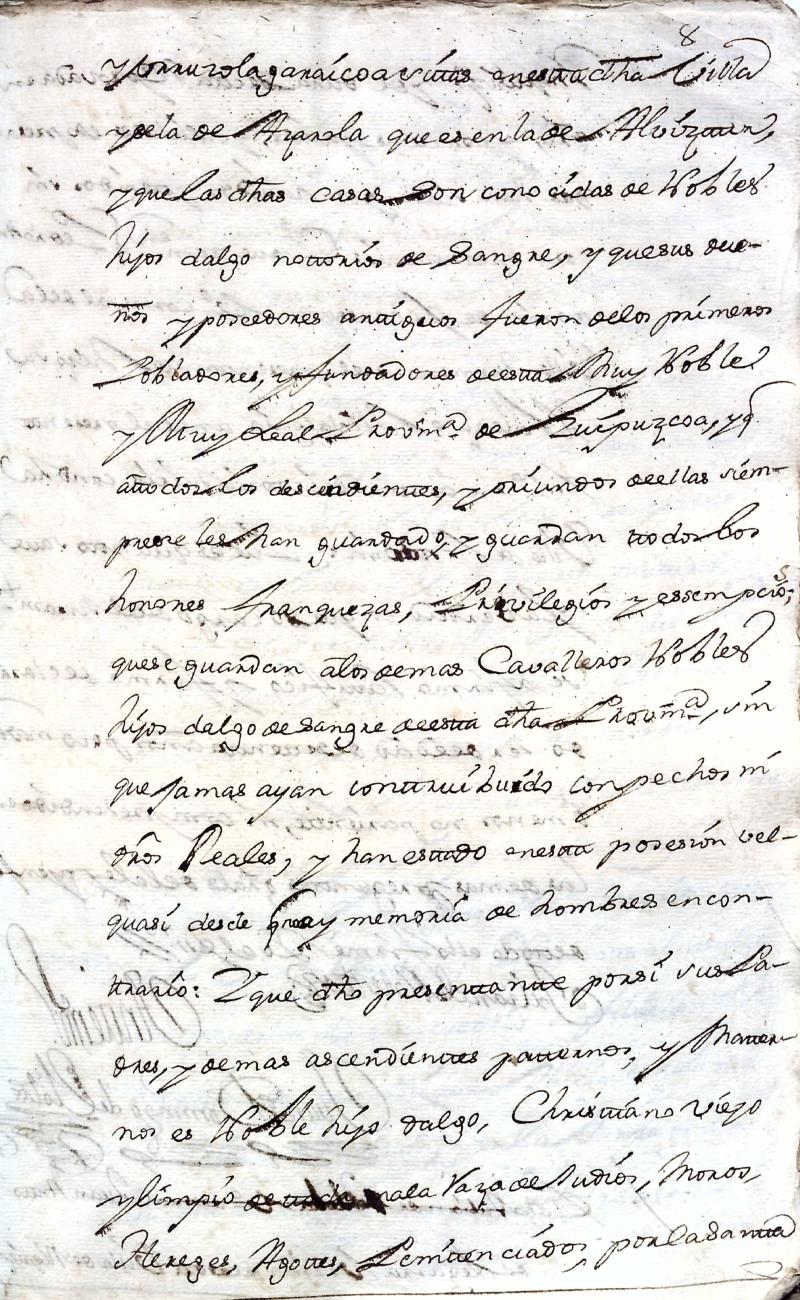 8
y Yorruzolagaraicoa sittas en estta dha Villa
y de la de Azarola que es en la de Alvizttur,
y que las dhas casas son conocidas de Nobles
hijos dalgo nottorios de Sangre, y que sus due-
nos y poseedores anttiguos fueron de los primeros
Pobladores, y fundadores de estta Muy Noble
y Muy Leal Provinª de Guipuzcoa, y q
a ttodos los descendienttes, y oriundos de ellas siem-
pre se les han guardado, y guardan ttodos los
honores franquezas, Privilegios y essempcios,
que se guardan a los demas Cavalleros Nobles
hijos dalgo de Sangre de estta dha Provinª, sin
que jamas ayan conttribuido con pechos ni
dros Reales, y han esttado en estta posesion vel-
quasi desde que ay memoria de hombres en con-
ttrario: Y que dho presenttantte por si sus Pa-
dres, y demas ascendienttes patternos, y Matter-
nos es Noble hijo dalgo, Christtiano viejo
y limpio de ttoda mala Raza de Judios, Moros,
Hereges, Agotes, Penittenciados, por la Santta